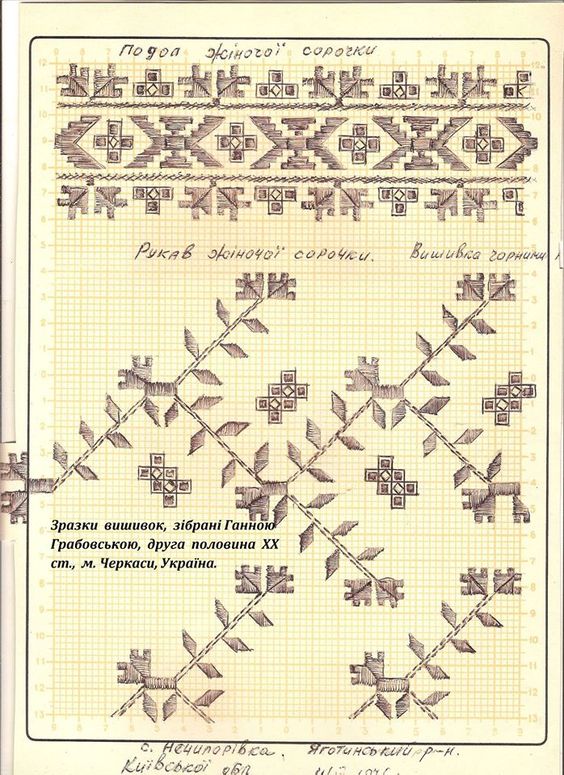 Подол жіночої сорочки
Рукав жіночої сорочки. Вишивка чорними
Зразки вишивок, зібрані Ганною
Грабовською, друга половина ХХ
ст., м. Черкаси, Україна.
с. Нечипорівка. Яготинський р-н.
Київської обл